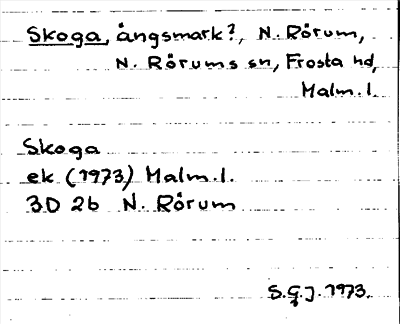 Skoga, ångsmark?, N. Rörum,
N. Rörums sn, Frosta hd,
Malm. l.
Skoga
ek (1973) Malm. l.
3D 2b N. Rörum
S.G.J. 1973.